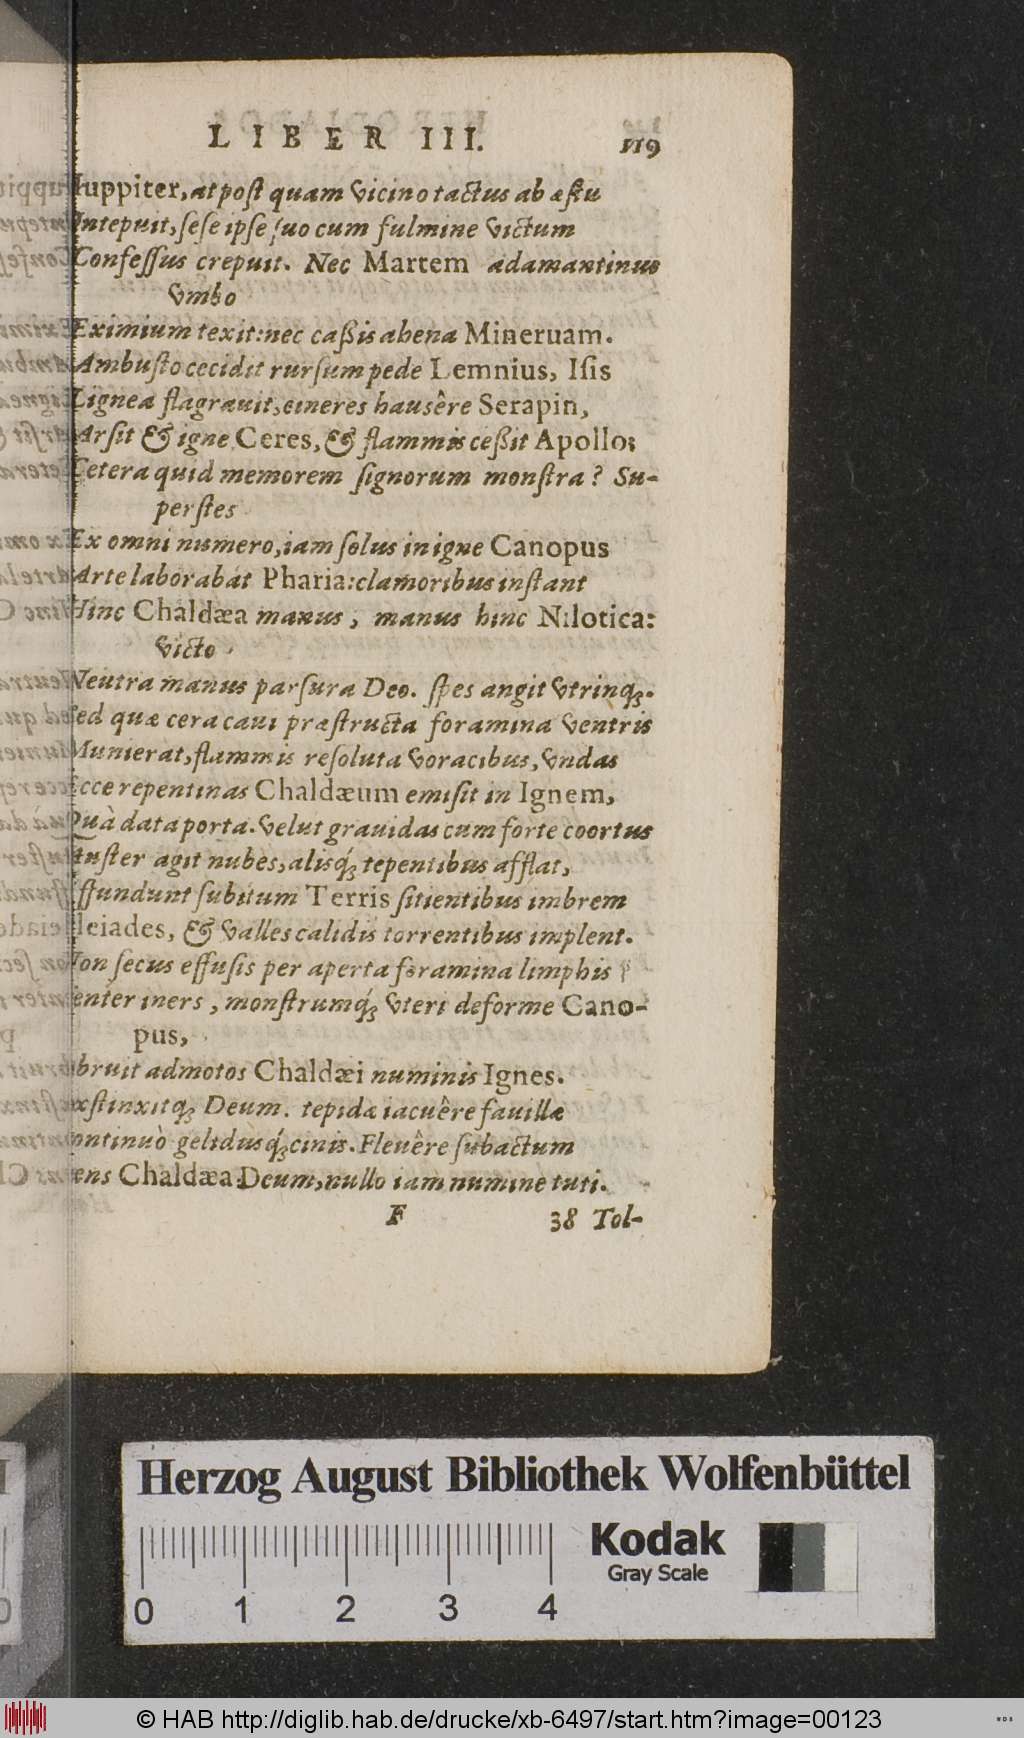 LIBER III. 119
Iuppiter, at post quam vicino tactus ab æstu
Intepuit, sese ipse suo cum fulmine victum
Confessus crepuit. Nec Martem adamantinus
vmbo
Eximium texit: nec caßis ahena Mineruam.
Ambusto cecidit rursum pede Lemnius, Isis
Lignea flagrauit, cineres hausêre Serapin,
Arsit & igne Ceres, & flammis ceßit Apollo;
Cetera quid memorem signorum monstra? Su-
perstes
Ex omni numero, iam solus in igne Canopus
Arte laborabat Pharia: clamoribus instant
Hinc Chaldæa manus, manus hinc Nilotica:
victo
Neutra manus parsura Deo. spes angit vtrinq;.
sed quæ cera caui præstructa foramina ventris
Munierat, flammis resoluta voracibus, vndas
Ecce repentinas Chaldæum emisit in Ignem,
Quà data porta. velut grauidas cum forte coortus
Auster agit nubes, alisq́; tepentibus afflat,
Effundunt subitum Terris sitientibus imbrem
Pleiades, & valles calidis torrentibus implent.
Non secus effusis per aperta foramina limphis
venter iners, monstrumq́; vteri deforme Cano-
pus,
obruit admotos Chaldæi numinis Ignes.
exstinxitq; Deum. tepidæ iacuêre fauillæ
continuò gelidusq́; cinis. Fleuêre subactum
Gens Chaldæa Deum, nullo iam numine tuti.
F 38 Tol-
Herzog August Bibliothek Wolfenbüttel
Kodak
Gray Scale
0 1 2 3 4
© HAB http://diglib.hab.de/drucke/xb-6497/start.htm?image=00123